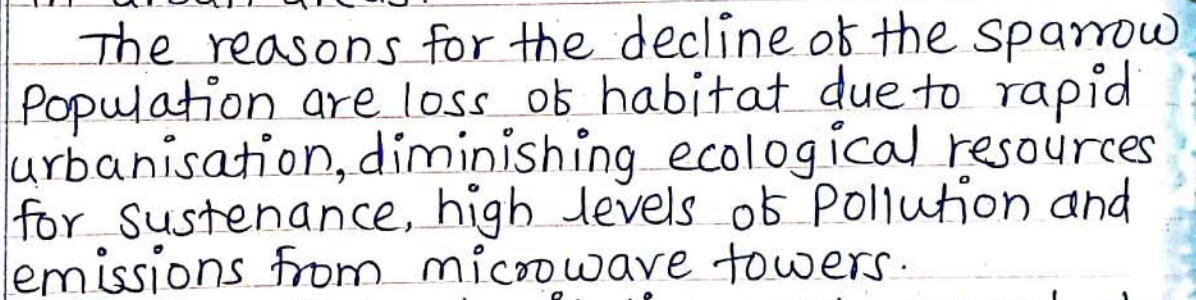 The reasons for the decline of the sparrow
Population are loss of habitat due to rapid
urbanisation, diminishing ecological resources
for sustenance, high levels of Pollution and
emissions from microwave towers.